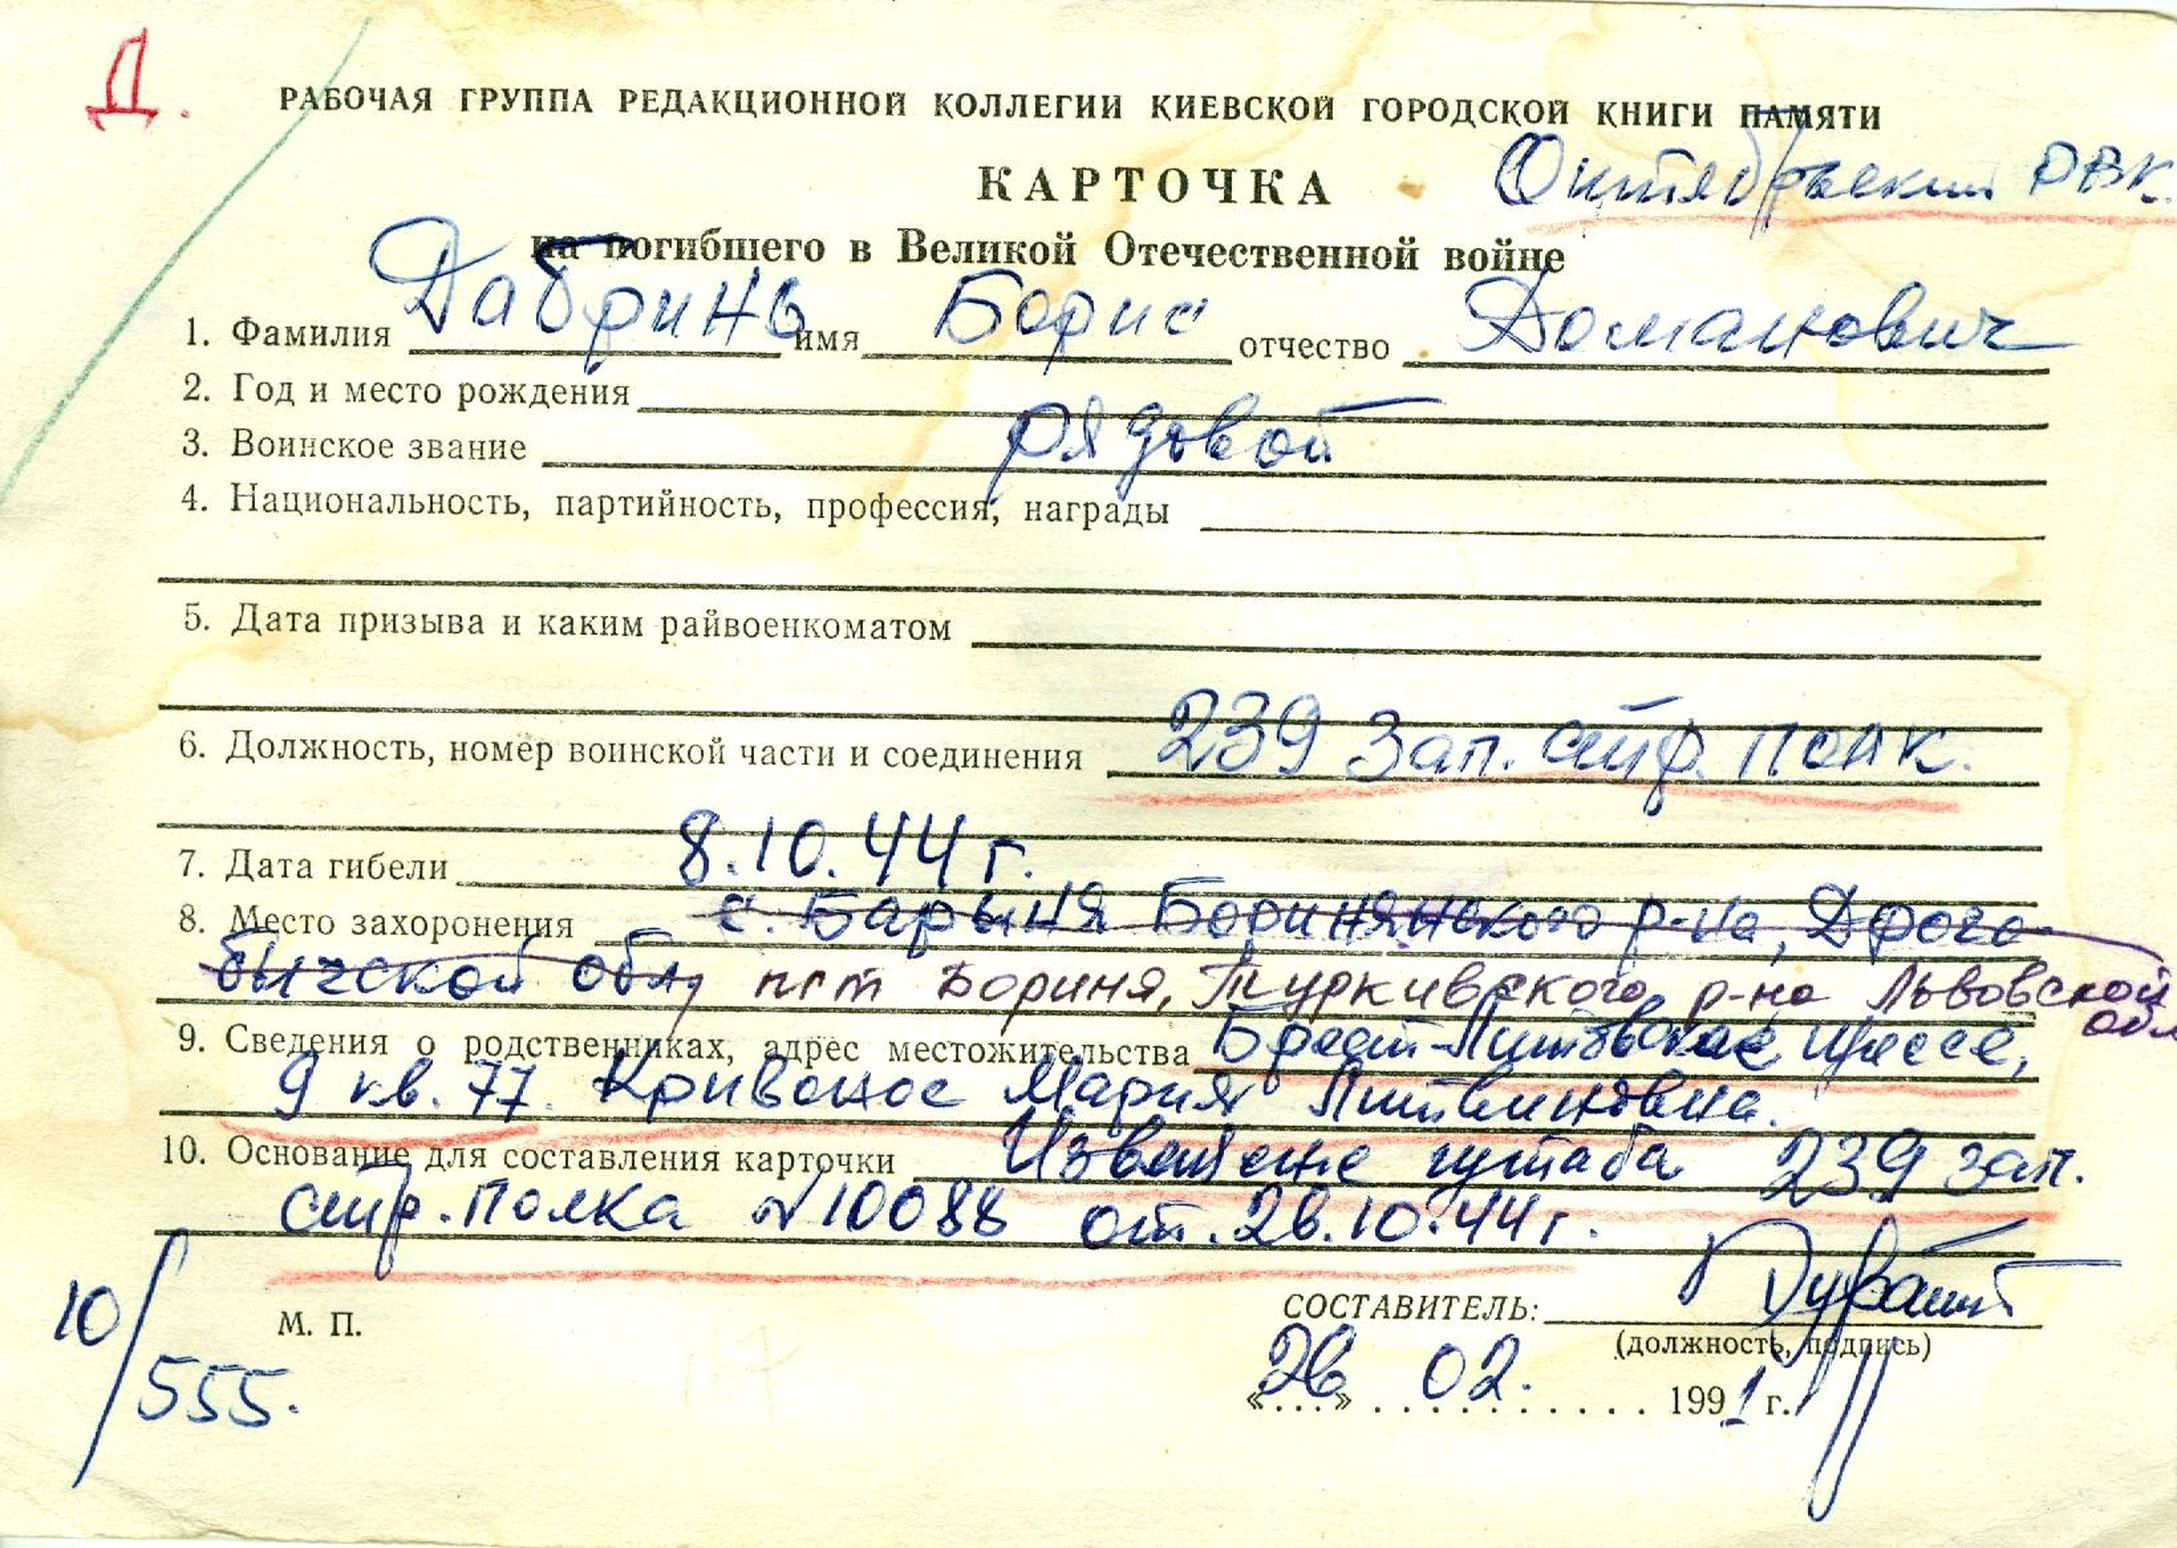 Д.
РАБОЧАЯ ГРУППА РЕДАКЦИОННОЙ КОЛЛЕГИИ КИЕВСКОЙ ГОРОДСКОЙ КНИГИ ПАМЯТИ
Октябрьский РВК.
КАРТОЧКА
на погибшего в Великой Отечественной войне
1. Фамилия Дабринь имя Борис отчество Доманович
2. Год и место рождения
3. Воинское звание рядовой
4. Национальность, партийность, профессия, награды
5. Дата призыва и каким райвоенкоматом
6. Должность, номер воинской части и соединения 239 Зап. стр. полк.
7. Дата гибели 8.10.44 г.
8. Место захоронения с. Барыня Боринянского р-на, Дрого-
бычской обл, пгт Бориня, Туркивского р-на Львовской обл
9. Сведения о родственниках, адрес местожительства Брест-Литовское шоссе,
9 кв. 77. Кривонос Мария Литвиновна.
10. Основание для составления карточки Извещение штаба 239 зап.
стр. полка №10088 от 26.10.44 г.
10/555.
М. П.
СОСТАВИТЕЛЬ:
(должность, подпись)
«26» 02. 1991 г.